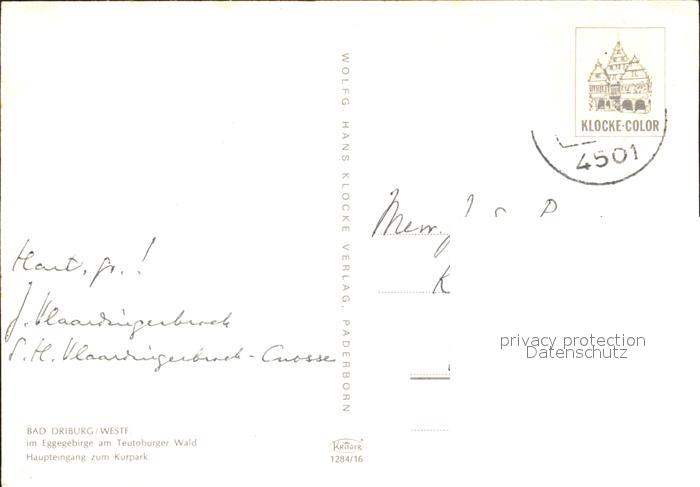 KLOCKE-COLOR
4501
WOLFG. HANS KLOCKE VERLAG, PADERBORN
Hart. gr.!
J. Vlaardingerbroek
S. H. Vlaardingerbroek - Cnosse
privacy protection
Datenschutz
BAD DRIBURG/WESTF.
im Eggegebirge am Teutoburger Wald
Haupteingang zum Kurpark
KRÜGER
1284/16